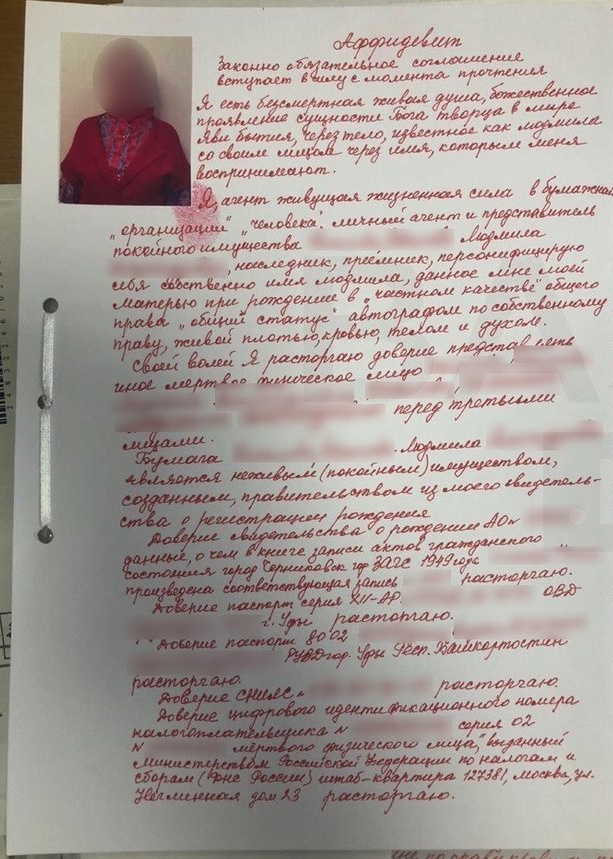 Аффидевит
Законно обязательное соглашение
вступает в силу с момента прочтения
Я есть безсмертная живая душа, божественное
проявление сущности Бога творца в мире
Яви бытия, через тело, известное как людмила
со своим лицом через имя, которым меня
воспринимают.
Я, агент живущая жизненная сила в бумажной
„организации" „человека". личный агент и представитель
покойного имущества Людмила
, наследник, приёмник, персонифицирую
себя собственно имя людмила, данное мне моей
матерью при рождение в „частном качестве" общего
права „общий статус" автографом по собственному
праву, живой плотью, кровью, телом и духом.
Своей волей Я расторгаю доверие представлять
иное мертвое физическое лицо
перед третьими
лицами.
Бумага . Людмила
является неживым (покойным) имуществом,
созданным, правительством из моего свидетель-
ства о регистрации рождения
Доверие свидетельства о рождении АО№
данные, о чем в книге записи актов гражданского
состояния город Черниковск гор ЗАГС 1949 года
произведена соответствующая запись расторгаю.
Доверие паспорт серия XII-АР ОВД
г. Уфы расторгаю.
Доверие паспорт 8002
РУВД гор. Уфы Респ. Башкортостан
расторгаю.
Доверие СНИЛС № расторгаю.
Доверие цифрового идентификационного номера
налогоплательщика № серия 02
№ мёртвого физического лица," выданный
Министерством Российской Федерации по налогам и
сборам (ФНС России) штаб-квартира 127381, Москва, ул.
Неглинная дом 23 расторгаю.